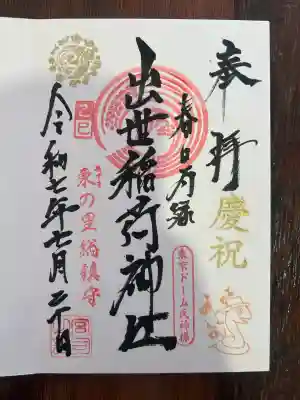 奉拝
慶祝
春日局縁
出世稲荷神社
東京ドーム氏神様
乙巳
東の里総鎮守
令和七年七月二十日